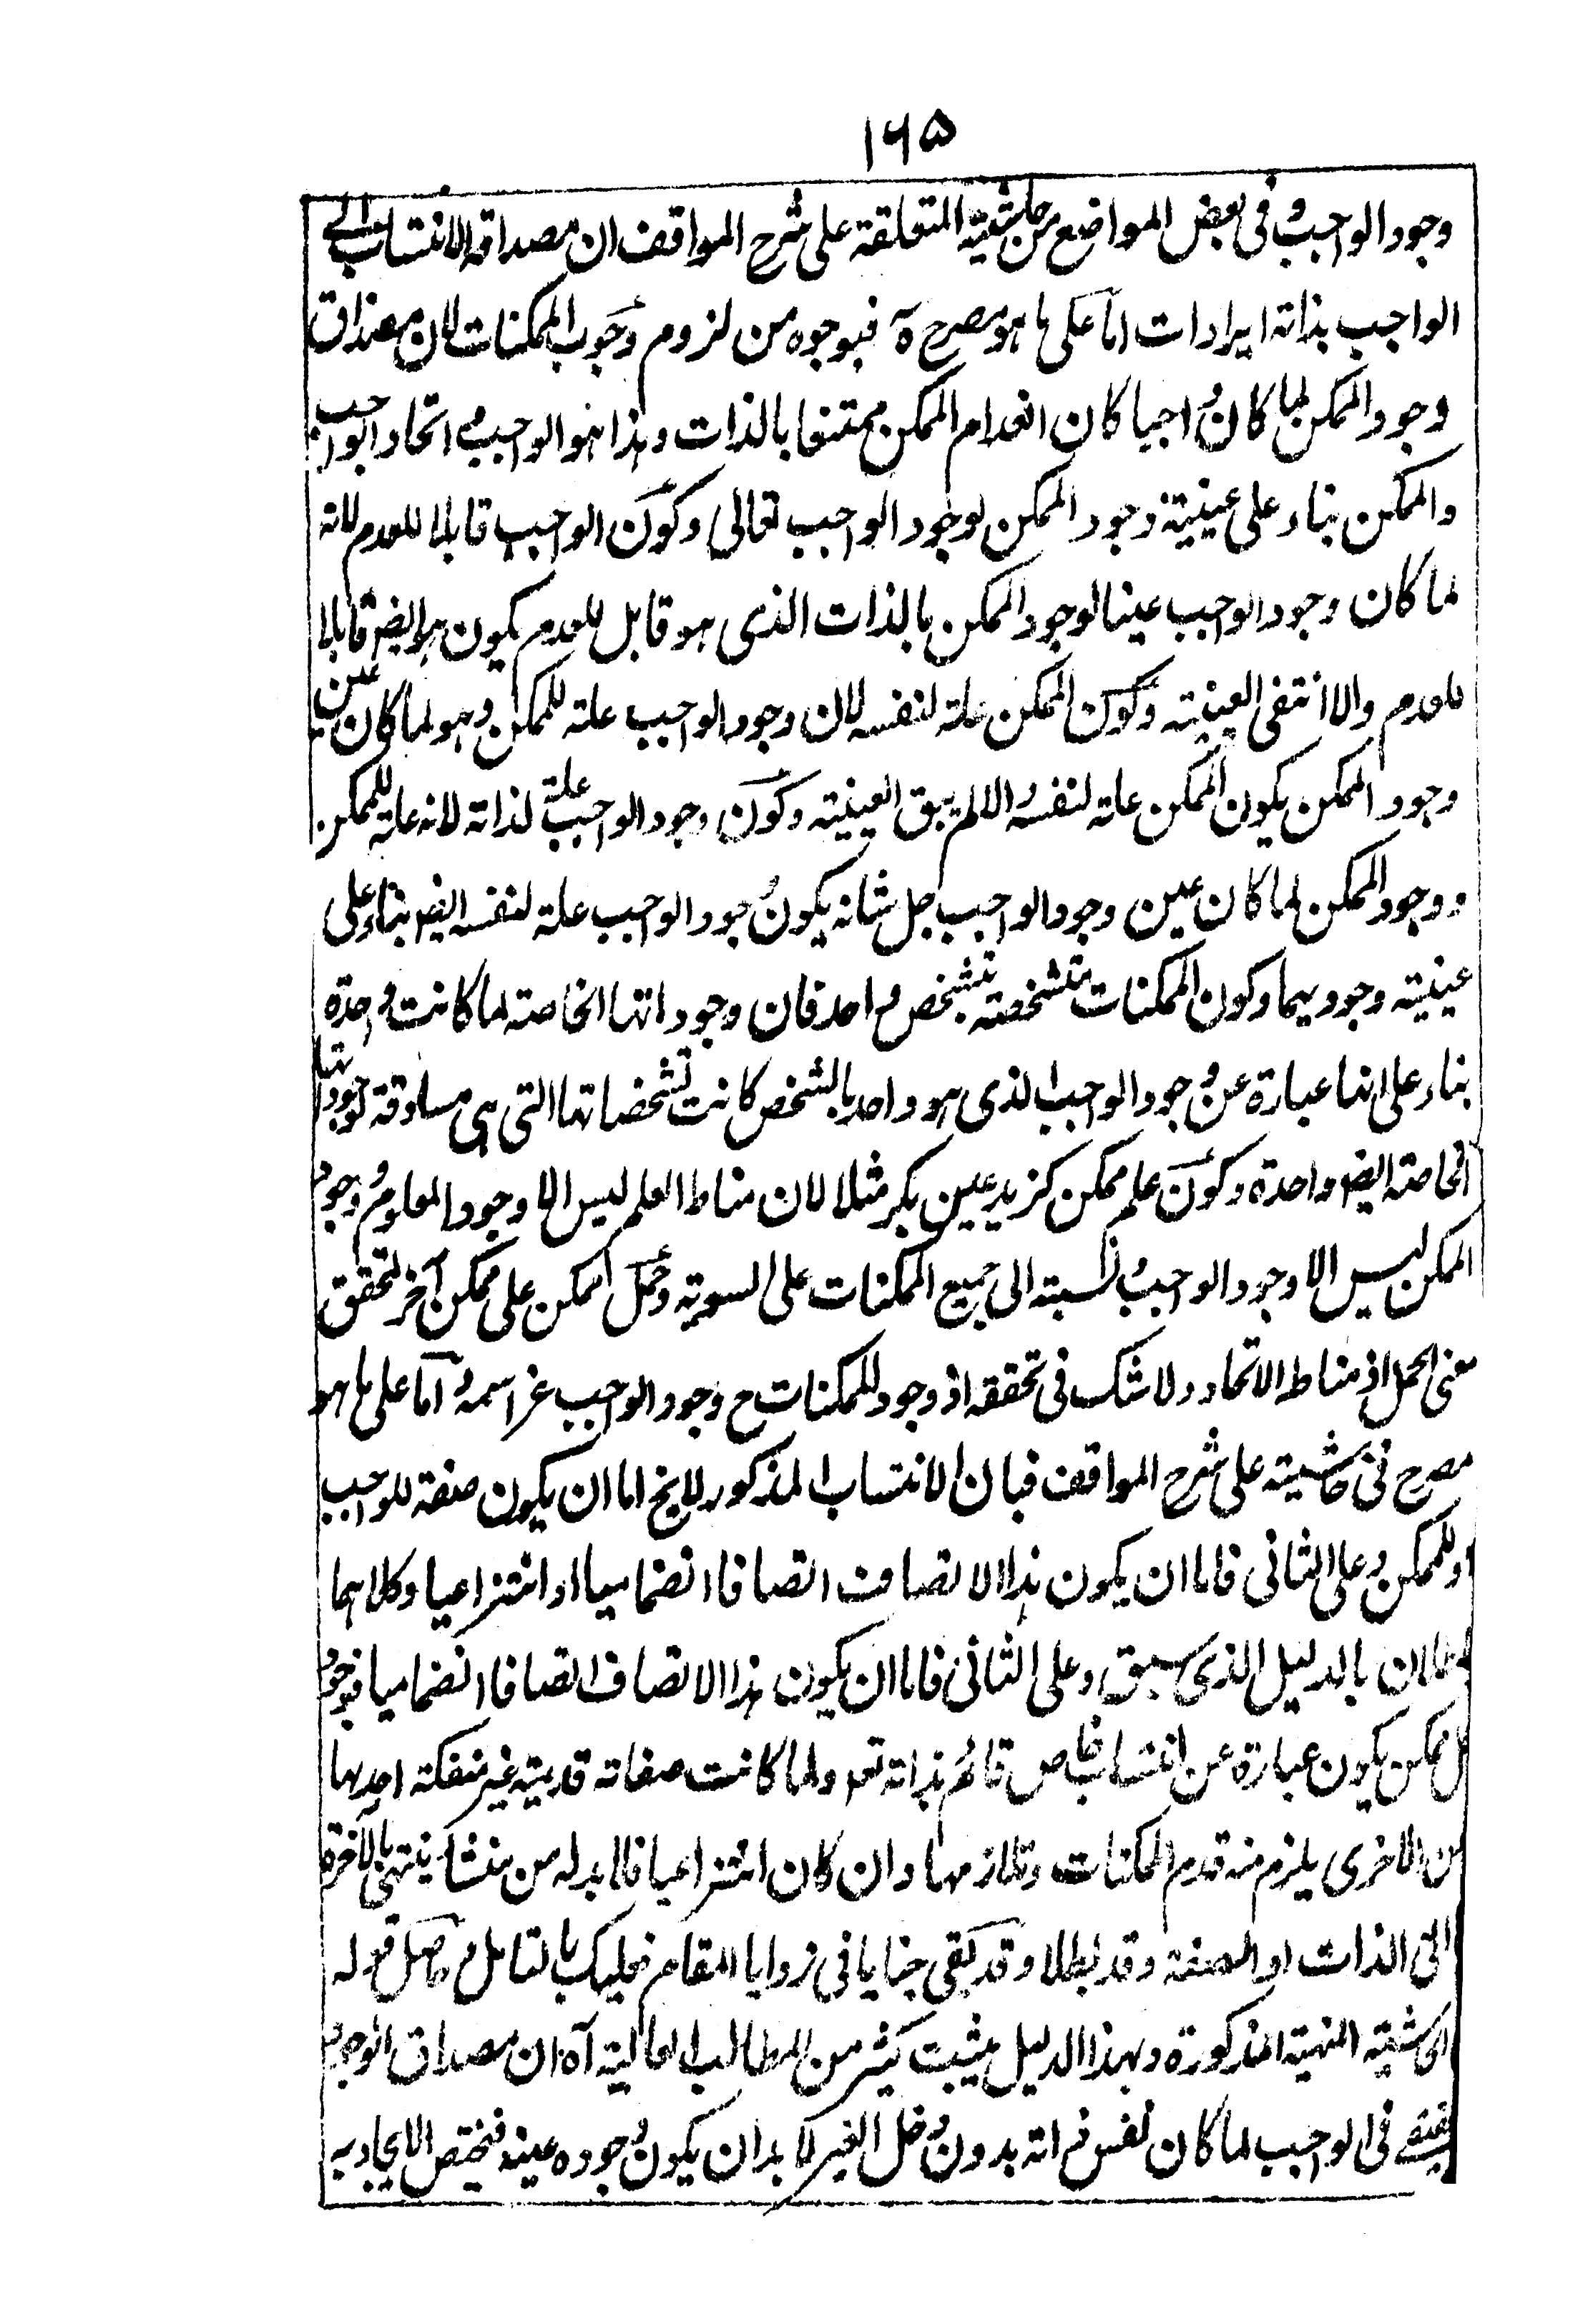 ١٦٥
وجود الواجب و فى بعض المواضع من حاشيته المتعلقة على شرح المواقف ان مصداقه الانتساب الى
الواجب بذاته ايرادات اما على ما هو مصرح ه فبوجوه من لزوم وجوب الممكنات لان مصداق
وجود الممكن لما كان واجبا كان انعدام الممكن ممتنعا بالذات وهذا هو الواجب و اتحاد الواجب
والممكن بناء على عينية وجود الممكن لوجود الواجب تعالى وكون الواجب قابلا للعدم لانه
لما كان وجود الواجب عينا لوجود الممكن بالذات الذى هو قابل للعدم يكون هو ايضا قابلا
للعدم والا انتفى العينية وكون الممكن علة لنفسه لان وجود الواجب علة للممكن وهو لما كان عين
وجود الممكن يكون الممكن علة لنفسه والا لم يبق العينية وكون وجود الواجب علة لذاته لانه علة للممكن
ووجود الممكن لما كان عين وجود الواجب جل شانه يكون وجود الواجب علة لنفسه ايض بناء على
عينية وجوديهما وكون الممكنات متشخصة بتشخص واحد فان وجوداتها الخاصة لما كانت واحدة
بناء على انها عبارة عن وجود الواجب الذى هو واحد بالشخص كانت تشخصاتها التى هى مساوقة لوجوداتها
الخاصة ايض واحدة وكون علم ممكن كزيد عين بكر مثلا لان مناط العلم ليس الا وجود المعلوم ووجود
الممكن ليس الا وجود الواجب و نسبته الى جميع الممكنات على السوية وحمل ممكن على ممكن آخر لتحقق
معنى الحمل اذ مناط الاتحاد ولا شك فى تحققه اذ وجود للممكنات ح وجود الواجب عز اسمه و اما على ما هو
مصرح فى حاشيته على شرح المواقف فبان الانتساب المذكور لا يخ اما ان يكون صفة للواجب
او للممكن وعلى الثانى فاما ان يكون هذا الاتصاف اتصافا انضماميا او انتزاعيا وكلاهما
باطلان بالدليل الذى سبق وعلى الثانى فاما ان يكون هذا الاتصاف اتصافا انضماميا فوجود
كل ممكن يكون عبارة عن انتساب خاص قائم بذاته تعه ولما كانت صفاته قديمة غير منفكة احدها
من الاخرى يلزم منه قدم الممكنات وتلازمها وان كان انتزاعيا فلا بد له من منشأ ينتهى بالآخرة
الى الذات او الصفة وقد بطلا وقد بقى خبايا فى زوايا المقام فعليك بالتامل و حاصل قوله
الحاشية المنهية المذكورة وبهذا الدليل يثبت كثير من المطالب العالية آه ان مصداق الوجود
فى الواجب لما كان نفس ذاته بدون دخل الغير لا بد ان يكون وجوده عينه فيختص الايجاد به